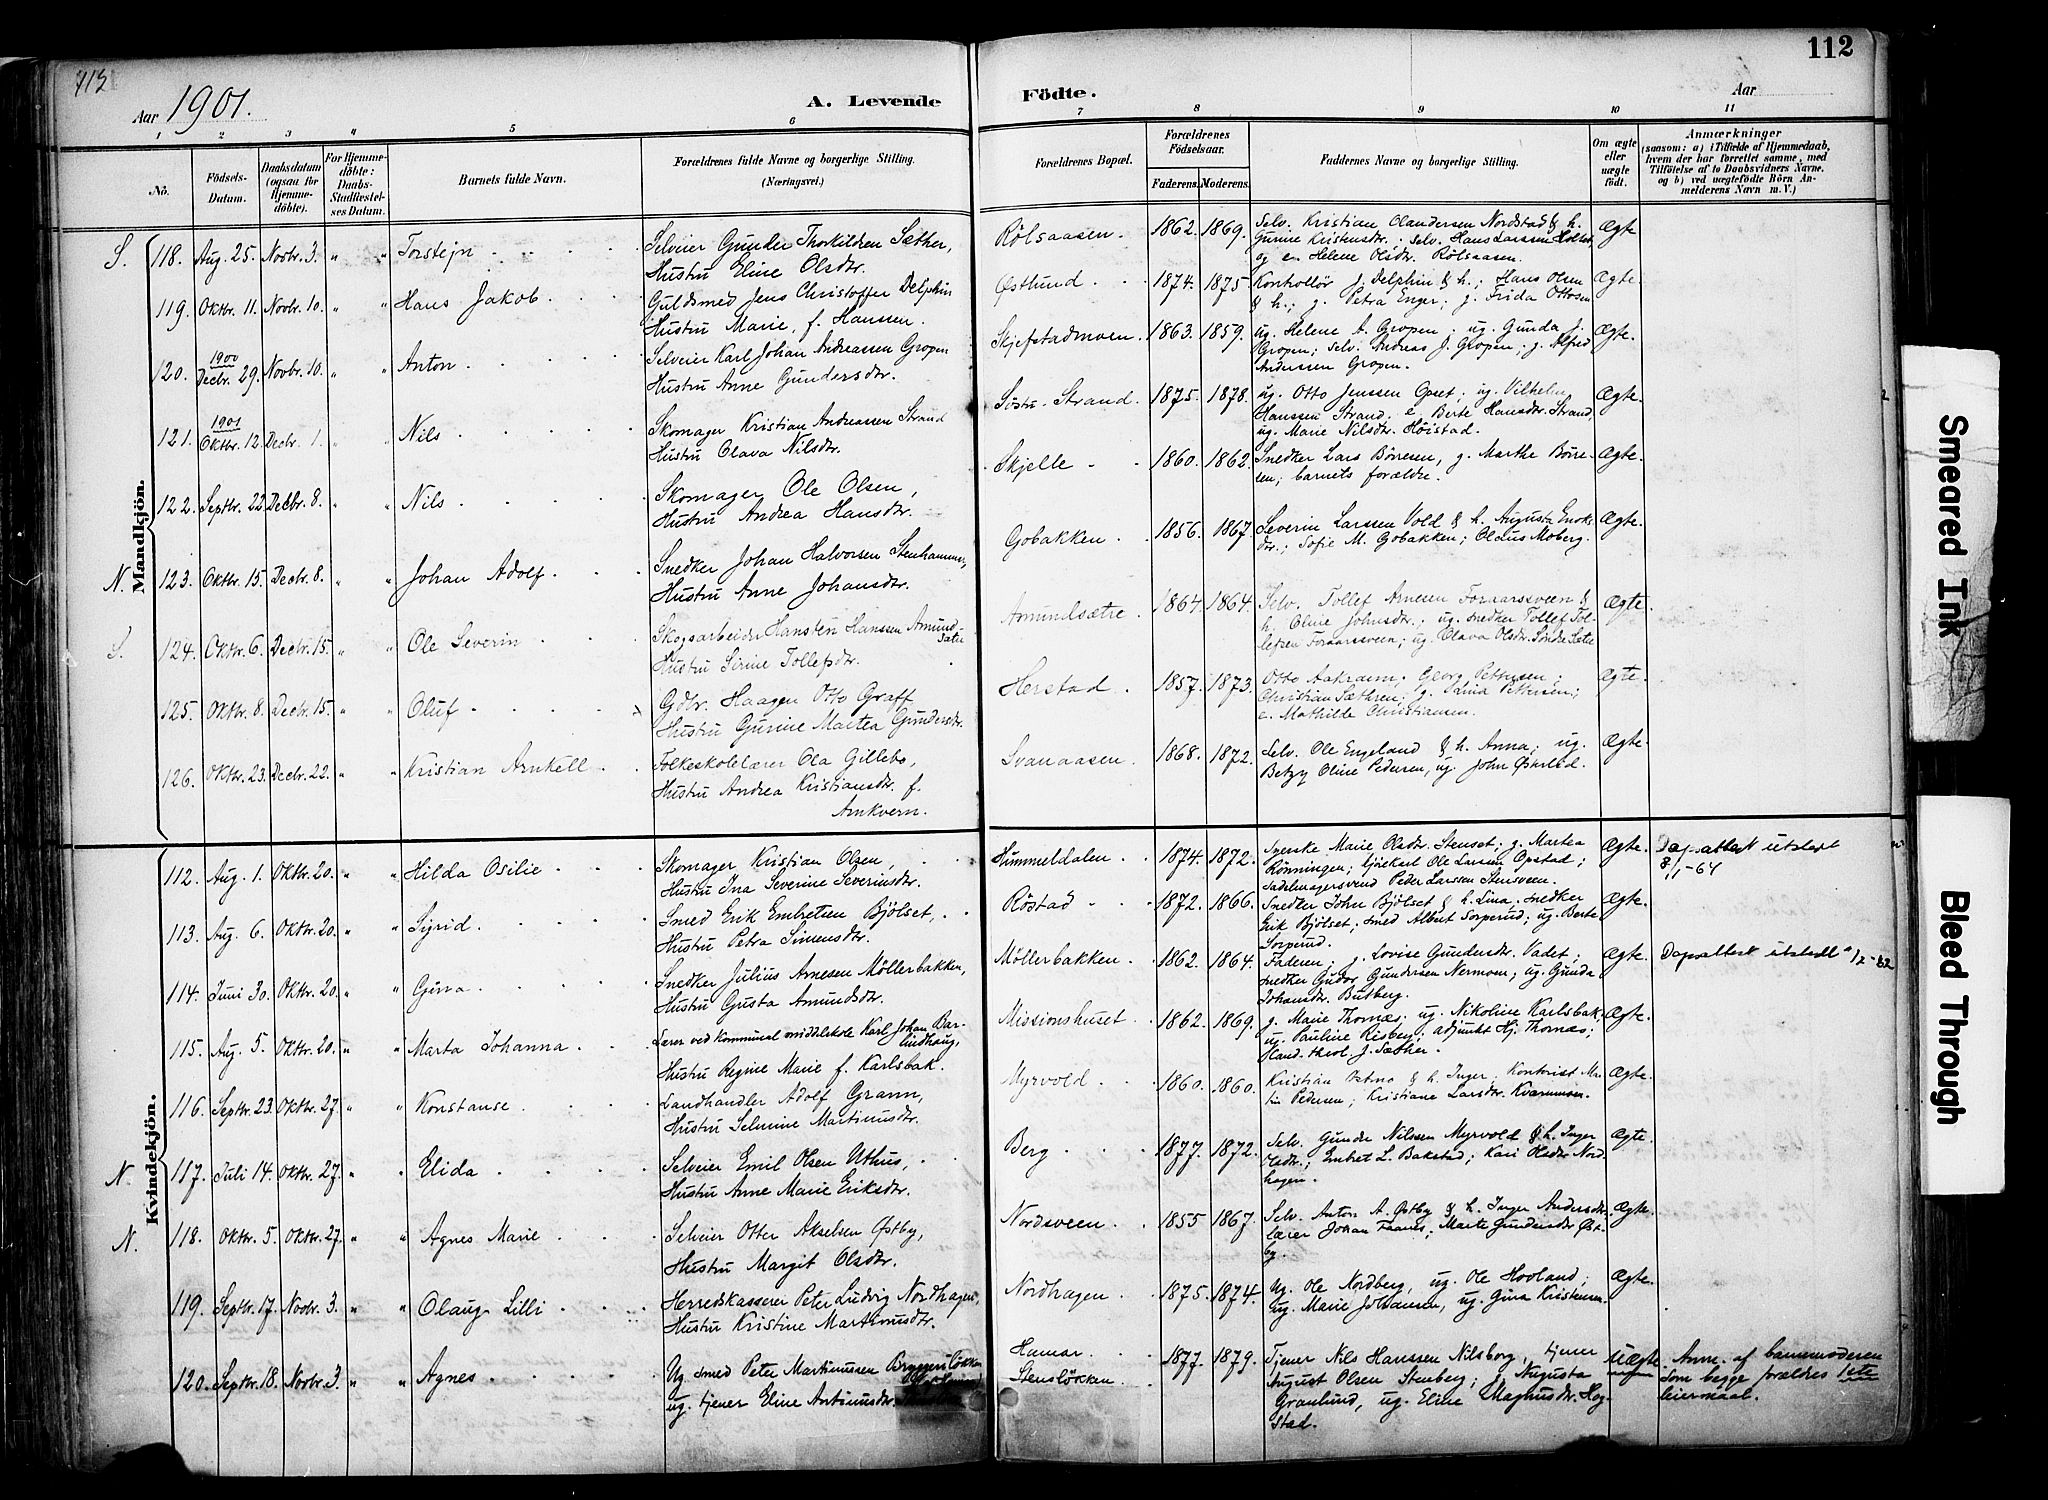 112
Aar 1901.
A. Levende
Födte.
Aar
1 2 3 " 5 6 7 8 9 10 11
No.
Födsels-Datum.
Daabsdatum (ogsaa for Hjemmedöbte).
For Hjemmedöbte: Daabs-Stadfæstelses Datum.
Barnets fulde Navn.
Forældrenes fulde Navne og borgerlige Stilling.
(Næringsvei.)
Forældrenes Bopæl.
Forældrenes Födselsaar.
Faderens. Moderens.
Faddernes Navne og borgerlige Stilling.
Om ægte eller uægte födt.
Anmærkninger
(saasom: a) i Tilfælde af Hjemmedaab, hvem der har forrettet samme, med Tilföielse af to Daabsvidners Navne, og b) ved uægtefödte Börn Anmelderens Navn m. V.)
Mandkjön.
S. 118. Aug. 25. Novbr. 3. " " Torstejn
Selveier Gunder Thorkildsen Sæther,
Hustru Eline Olsdtr.
Rölsaasen. 1862. 1869.
Selv. Kristian Olandersen Nordstad & h.
Gurine Kristensdtr.; selv. Hans Larssen
og e. Helene Olsdtr. Rölsaasen.
Ægte
119. Oktbr. 11. Novbr. 10. " " Hans Jakob
Guldsmed Jens Christoffer Delphin
Hustru Marie, f. Hanssen.
Østlund 1874. 1875
Kontrollør J. Delphin & h.; Hans Olsen
& h.; g. Petra Enger; g. Frida Ottosen
Ægte.
120. 1900 Decbr. 29. Novbr. 10. " " Anton
Selveier Karl Johan Andreassen Gropen
Hustru Anne Gundersdtr.
Skjefstadmoen. 1863. 1859.
ug. Helene A. Gropen; ug. Gunda J.
Gropen; selv. Andreas J. Gropen; g. Alfred
Anderssen Gropen.
Ægte.
121. 1901 Oktbr. 12. Decbr. 1. " " Nils
Skomager Kristian Andreassen Strand
Hustru Olava Nilsdtr.
Söstu-Strand. 1875. 1878.
ug. Otto Jenssen Opset; ug. Vilhelm
Hanssen Strand. e. Berte Hansdtr. Strand,
ug. Marie Nilsdtr. Höistad.
Ægte.
122. Septbr. 22 Decbr. 8. " " Nils
Skomager Ole Olsen,
Hustru Andrea Hansdtr.
Skjelle 1860. 1862.
Snedker Lars Börresen, g. Marthe Börre-
sen; barnets forældre.
Ægte.
N. 123. Oktbr. 15. Decbr. 8. " " Johan Adolf
Snedker Johan Halvorsen Stenhammer,
Hustru Anne Johansdtr.
Gobakken 1856. 1867.
Severin Larssen Vold & h. Augusta Enoks-
dtr.; Sofie M. Gobakken; Olaus Moberg.
Ægte.
S. 124. Oktbr. 6. Decbr. 15. " " Ole Severin
Skogsarbeider Hansten Hanssen Amund-
sætre
Hustru Sirine Tollefsdtr.
Amundsætre 1864. 1864.
Selv. Tollef Arnesen Foraarssveen &
h. Oline Johnsdtr.; ug. snedker Tollef Tol-
lefsen Foraarssveen; ug. Olava Olsdtr. Söndre Sætre
Ægte.
125. Oktbr. 8. Decbr. 15. " " Oluf
Gdbr. Haagen Otto Graff
Hustru Gurine Martea Gundersdtr.
Herstad 1857. 1873.
Otto Aakram; Georg Pettersen;
Christian Sæthren; g. Petersen;
e. Mathilde Christiansen.
Ægte.
126. Oktbr. 23. Decbr. 22. " " Kristian Arnkell
Folkeskolelærer Ola Gillebo,
Hustru Andrea Kristiansdtr. f.
Arnkvern.
Svenaasen. 1868. 1872.
Selv. Ole Engeland & h. Anna; ug.
Betzy Oline Pedersen, ug. John Østlid.
Ægte.
Kvindekjön.
112. Aug. 1. Oktbr. 20. " " Hilda Osilie
Skomager Kristian Olsen,
Hustru Ina Severine Severinsdtr.
Himmeldalen 1874. 1872.
Syerske Marie Olsdtr. Stenset; g. Martea
Rönningen; tjenekarl Ole Larsen Opstad;
Sadelmagersvend Peder Larssen Stensveen.
Ægte. Dåpsattest utstedt
8/1-64
113. Aug. 6. Oktbr. 20. " " Sigrid.
Smed Erik Embretsen Bjölset,
Hustru Petra Simensdtr.
Röstad 1872. 1866.
Snedker John Bjölset & h. Lina, snedker
Erik Bjölset; smed Albert Sorperud; ug. Berte
Sorperud.
Ægte.
114. Juni 30. Oktbr. 20. " " Gina
Snedker Julius Arnesen Möllerbakken,
Hustru Gusta Amundsdtr.
Möllerbakken 1862. 1864.
Faderen; g. Lovise Gundersdtr. Vadet;
snedker Gudor Gundersen Nermoen; ug. Gunda
Johansdtr. Butberg.
Ægte. Dåpsattest utstedt
115. Aug. 5. Oktbr. 20. " " Marta Johanna
Lærer ved kommunal middelskole Karl Johan Bar-
lindhaug,
Hustru Regine Marie f. Karlsbak.
Missionshuset 1862. 1869.
g. Marie Thornæs; ug. Nikoline Karlsbak,
ug. Pauline Risberg; adjunkt Hj. Thornæs;
kand. theol. J. Sæther.
Ægte.
116. Septbr. 23. Oktbr. 27. " " Konstanse
Landhandler Adolf Grann,
Hustru Selmine Martinusdtr.
Myrvold 1860. 1860.
Kristian Ostmo & h. Inger. Kontorist Mar-
tin Pedersen; Kristiane Larsdtr. Kvarnmoen.
Ægte.
N. 117. Juli 14. Oktbr. 27. " " Elida
Selveier Emil Olsen Uthus,
Hustru Anne Marie Eriksdtr.
Berg 1877. 1872.
Selv. Gunder Nilssen Myrvold & h. Inger
Olsdtr.; Embret L. Bakstad; Kari Nord-
hagen.
Ægte
N. 118. Oktbr. 5. Oktbr. 27. " " Agnes Marie
Selveier Otter Akselsen Østby,
Hustru Margit Olsdtr.
Nordsveen 1855 1867.
Selv. Anton A. Østby & h. Inger Andersdtr.
lærer Johan Faanes; Marte Gundersdtr. Øst-
by.
Ægte.
119. Septbr. 17. Novbr. 3. " " Olaug Lilli
Herredskasserer Peter Ludvig Nordhagen,
Hustru Kristine Martinusdtr.
Nordhagen 1875. 1874.
Ug. Ole Nordberg, ug. Ole Hovland;
ug. Marie Johansen, ug. Gina Kristensen.
Ægte.
120. Septbr. 18. Novbr. 3. " " Agnes
Ug. smed Peter Martinussen Bryggerilökken
ug. tjener Eline Antinusdtr.
Hamar
Stenslökken 1877. 1879.
Tjener Nils Hanssen Nilsborg, tjener
August Olsen Stenberg; g. Augusta
Granlund, ug. Elise Magnusdtr. Hog-
stad.
Uægte. Anm. af barnemoderen
som begge forældres 1ste
leiermaal.
Smeared Ink
Bleed Through